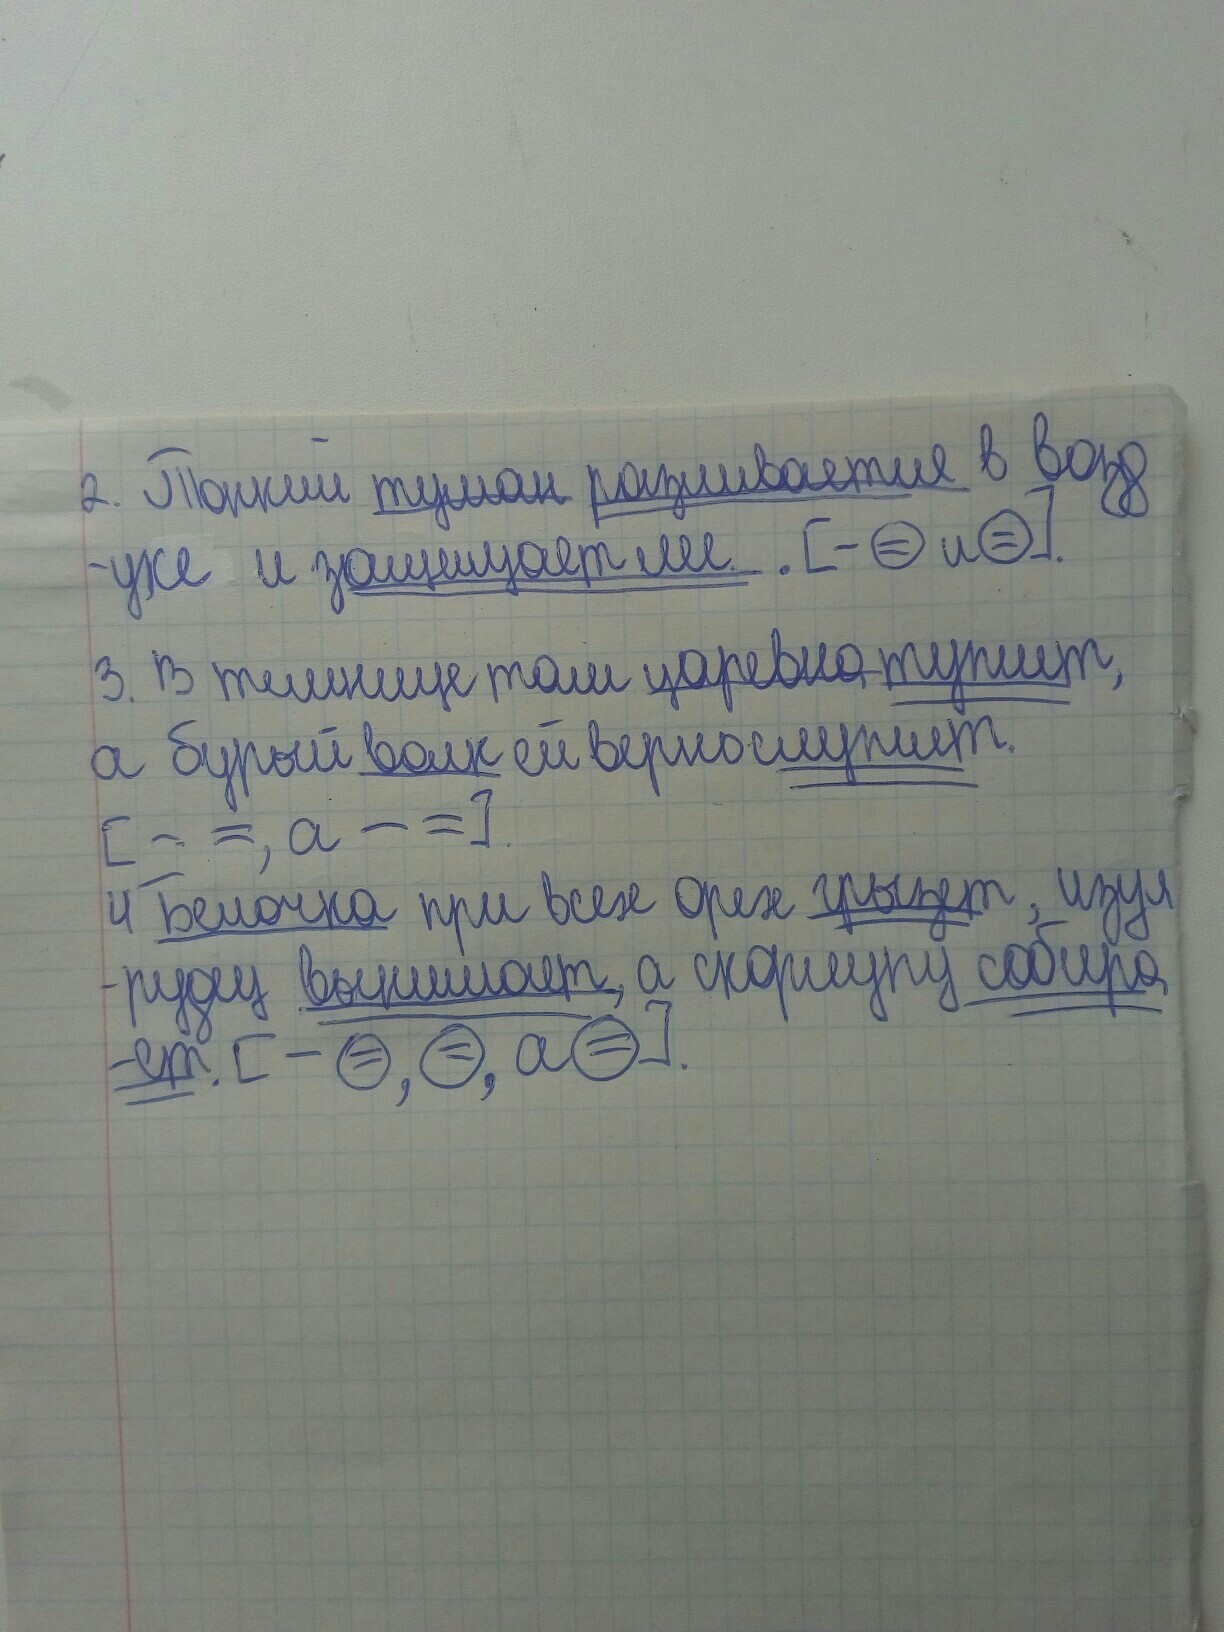 2. Тонкий туман разливается в возд
-ухе и защищает лес. [- = и =].
3. В темнице там царевна тужит,
а бурый волк ей верно служит.
[- =, а - =].
4 Белочка при всех орех грызет, изум
-рудец вынимает, а скорлупу собира
-ет. [- =, =, а =].